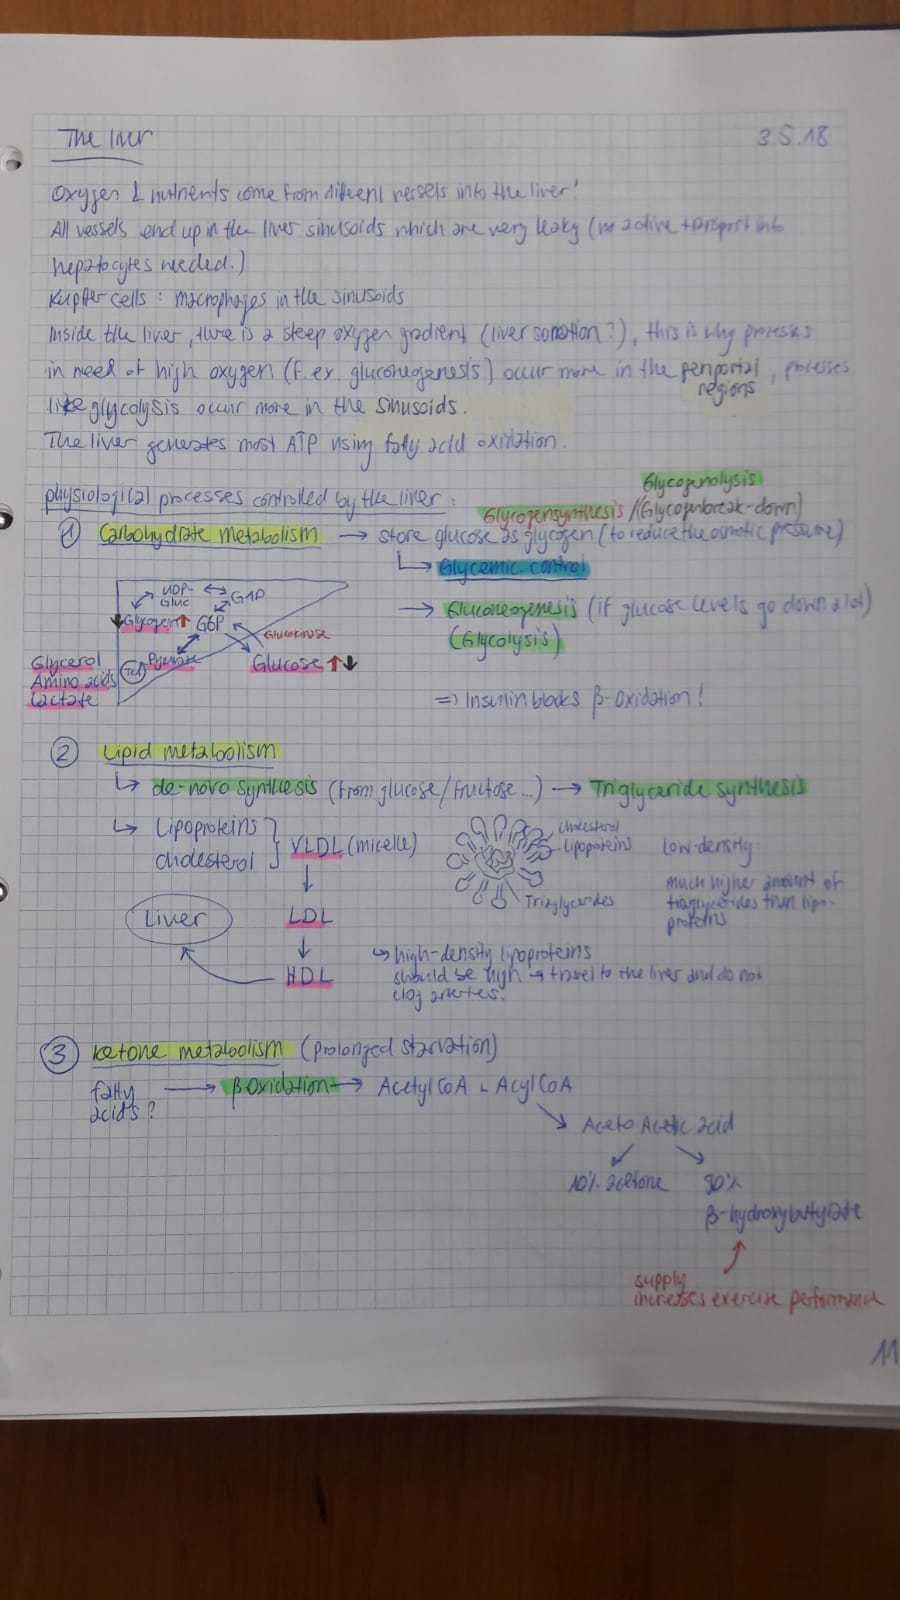 The liver
3.5.18
Oxygen & nutrients come from different vessels into the liver!
All vessels end up in the liver sinusoids which are very leaky (no active transport into
hepatocytes needed.)
Kupffer cells: macrophages in the sinusoids
Inside the liver, there is a steep oxygen gradient (liver zonation?), this is why processes
in need of high oxygen (f. ex. gluconeogenesis) occur more in the periportal regions, processes
like glycolysis occur more in the sinusoids.
The liver generates most ATP using fatty acid oxidation.
physiological processes controlled by the liver:
Glycogenolysis
Glycogensynthesis / (Glycogenbreak-down)
① Carbohydrate metabolism → store glucose as glycogen (to reduce the osmotic pressure)
↳ Glycemic control
UDP-Gluc ↔ G1P
↓ Glycogen ↑ G6P
Glucokinase
TCA Pyruvate
Glucose ↑↓
Glycerol
Amino acids
Lactate
→ Gluconeogenesis (if glucose levels go down a lot)
(Glycolysis)
⇒ Insulin blocks β-Oxidation!
② Lipid metabolism
↳ de-novo synthesis (from glucose/fructose...) → Triglyceride synthesis
↳ Lipoproteins
cholesterol } VLDL (micelle)
↓
LDL
↓
HDL
Liver
cholesterol
Lipoproteins
Triaglycerides
Low-density
much higher amount of
triaglycerides than lipo-
proteins
↳ high-density lipoproteins
should be high → travel to the liver and do not
clog arteries.
③ Ketone metabolism (prolonged starvation)
fatty
acids? → β Oxidation → Acetyl CoA - Acyl CoA
Aceto Acetic acid
10% acetone 90%
β-hydroxybutyrate
supply
increases exercise performance
11